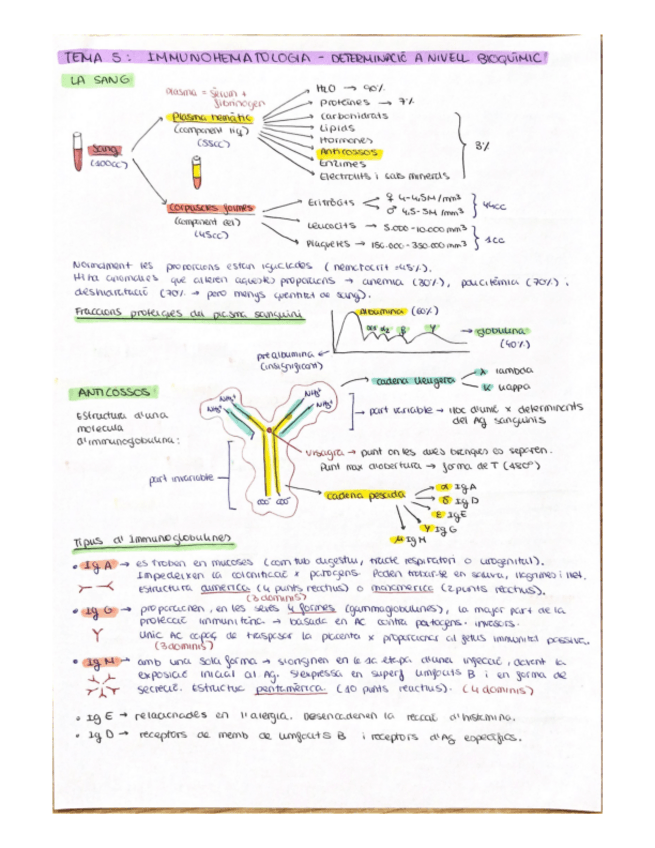 TEMA 5: IMMUNOHEMATOLOGIA - DETERMINACIÓ A NIVELL BIOQUÍMIC
LA SANG
plasma = sèrum +
fibrinogen
Plasma hemàtic
(component líq)
(55cc)
sang
(100cc)
H2O → 90%
Proteïnes → 7%
Carbohidrats
Lípids
Hormones
Anticossos
Enzimes
Electròlits i sals minerals
3%
corpuscles formes
(component cel)
(45cc)
Eritròcits
♀ 4-4,5M/mm³
♂ 4,5-5M/mm³
44cc
Leucòcits → 5.000-10.000 mm³
Plaquetes → 150.000-350.000 mm³
1cc
Normalment les proporcions estan igualades (hematòcrit =45%).
Hi ha anomalies que alteren aquestes proporcions → anèmia (30%), policitèmia (70%) i
deshidratació (70% → però menys quantitat de sang).
Fraccions proteiques del plasma sanguini
albumina (60%)
α1 α2 β γ
globulina
(40%)
prealbumina
(insignificant)
ANTICOSSOS
Estructura d'una
molècula
d'immunoglobulina:
NH3+
NH3+
NH3+
NH3+
cadena lleugera
λ lambda
K kappa
part variable → lloc d'unió x determinants
del Ag sanguinis
visagra → punt on les dues branques es separen.
Punt max d'obertura → forma de T (180º)
part invariable
COO- COO-
cadena pesada
α IgA
δ IgD
ε IgE
γ IgG
μ IgM
Tipus d'Immunoglobulines
• IgA → es troben en mucoses (com tub digestiu, tracte respiratori o urogenital).
Impedeixen la colonització x patògens. Poden trobar-se en saliva, llàgrimes i llet.
Estructura dimèrica (4 punts reactius) o monomèrica (2 punts reactius).
(3 dominis)
• IgG → proporcionen, en les seves 4 formes (gammaglobulines), la major part de la
protecció immunitària → basada en AC contra patògens invasors.
Únic AC capaç de traspassar la placenta x proporcionar al fetus immunitat passiva.
(3 dominis)
• IgM → amb una sola forma → s'originen en la 1a etapa d'una infecció, davant la
exposició inicial al Ag. S'expressa en superf limfòcits B i en forma de
secreció. Estructura pentamèrica. (10 punts reactius). (4 dominis)
• IgE → relacionades en l'al·lèrgia. Desencadenen la reacció d'histamina.
• IgD → receptors de memb de limfòcits B i receptors d'Ag específics.